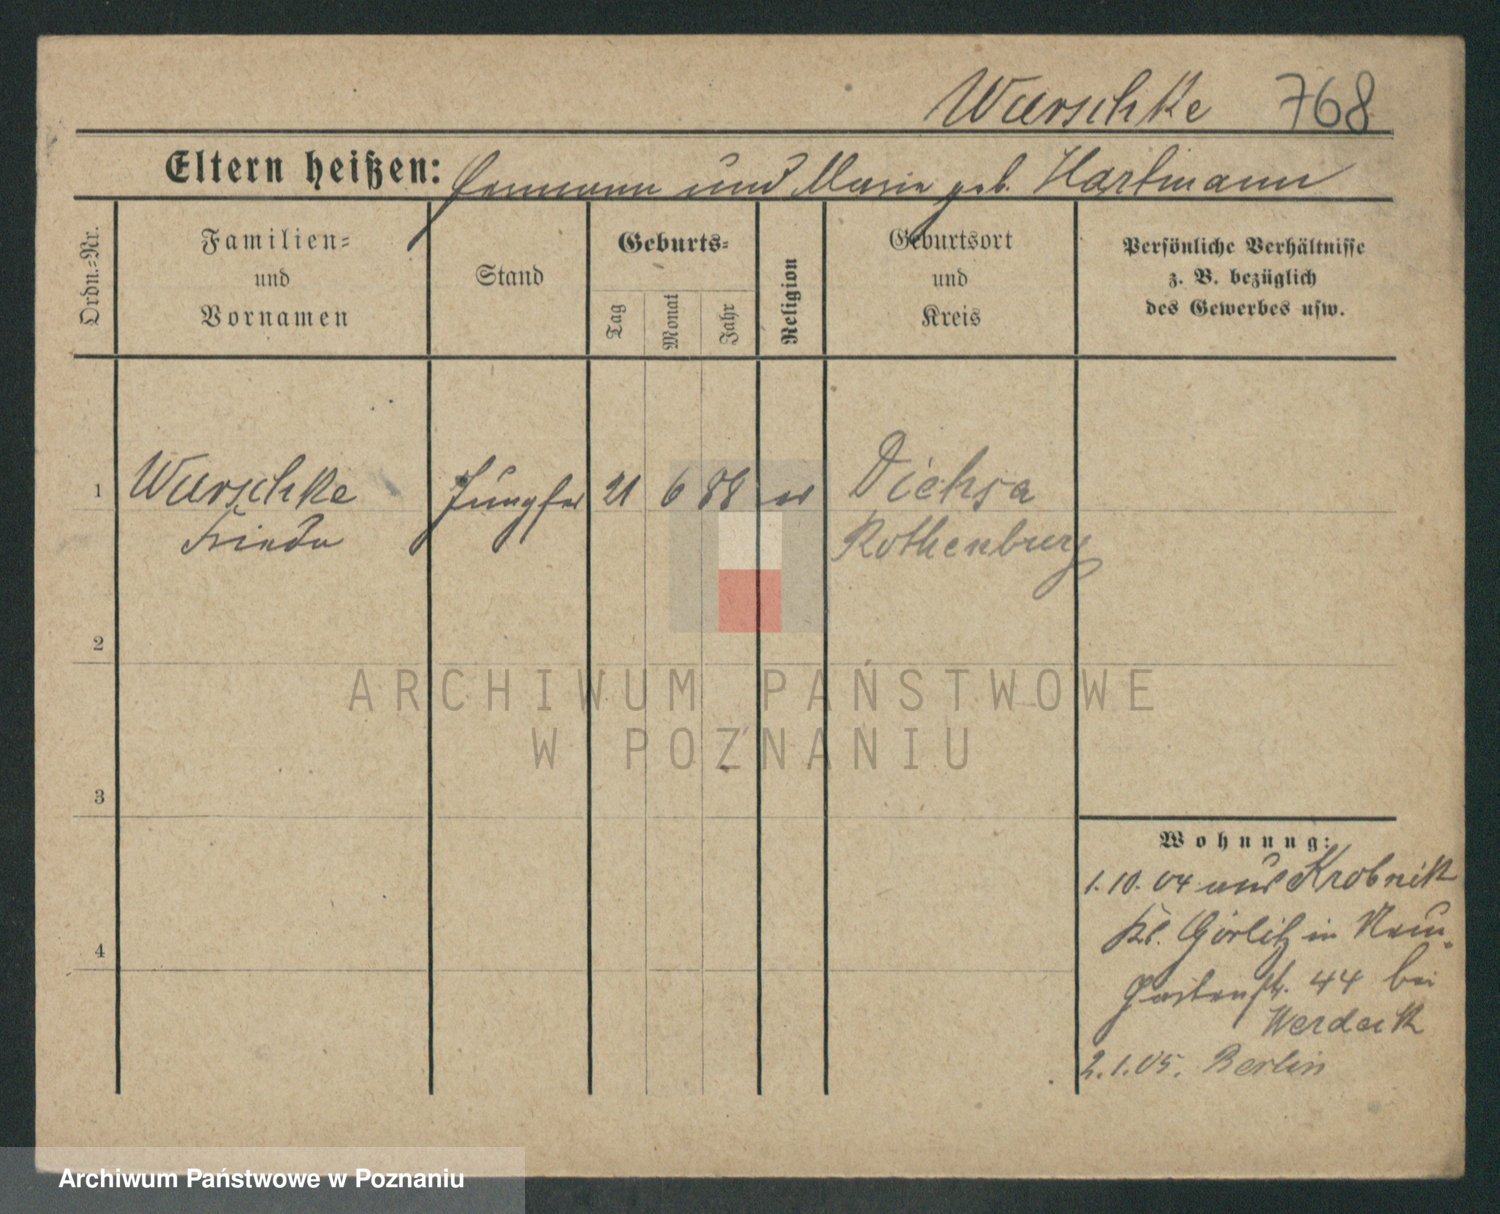 Wurschke 768
Eltern heißen: Hermann und Marie geb. Hartmann
Ordn.=Nr.
Familien=
und
Vornamen
Stand
Geburts=
Tag
Monat
Jahr
Religion
Geburtsort
und
Kreis
Persönliche Verhältnisse
z. B. bezüglich
des Gewerbes usw.
1 Wurschke Jungfer 21 6 88 ev Diehsa
Frieda Rothenburg
2
3
4
Wohnung:
1.10.04 aus Krobnitz
Kr. Görlitz in Neu-
Gartenstr. 44 bei
Werdeck
2.1.05. Berlin
ARCHIWUM PAŃSTWOWE
W POZNANIU
Archiwum Państwowe w Poznaniu